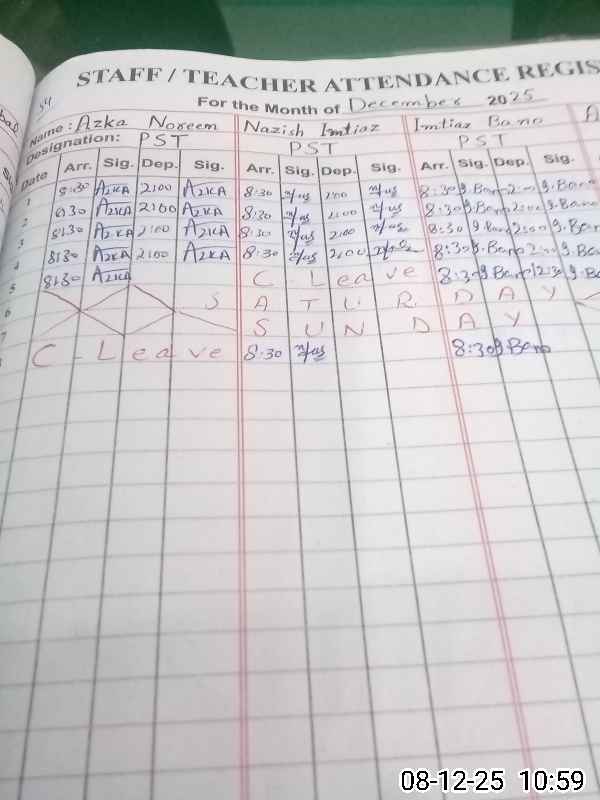 STAFF / TEACHER ATTENDANCE REGIS
For the Month of December 2025
Name : Azka Noreem Nazish Imtiaz Imtiaz Bano
Designation: PST PST PST
Date Arr. Sig. Dep. Sig. Arr. Sig. Dep. Sig. Arr. Sig. Dep. Sig.
1 8:30 AZKA 2:00 AZKA 8:30 2:00 8:30 I.Bano 2:00 I.Bano
2 8:30 AZKA 2:00 AZKA 8:30 2:00 8:30 I.Bano 2:00 I.Bano
3 8:30 AZKA 2:00 AZKA 8:30 2:00 8:30 I.Bano 2:00 I.Bano
4 8:30 AZKA 2:00 AZKA 8:30 2:00 8:30 I.Bano 2:00 I.Ba
5 8:30 AZKA C. Leave 8:30 I.Bano 12:30 I.Ba
6 SATURDAY
7 SUNDAY
C. Leave 8:30 8:30 I.Bano
08-12-25 10:59